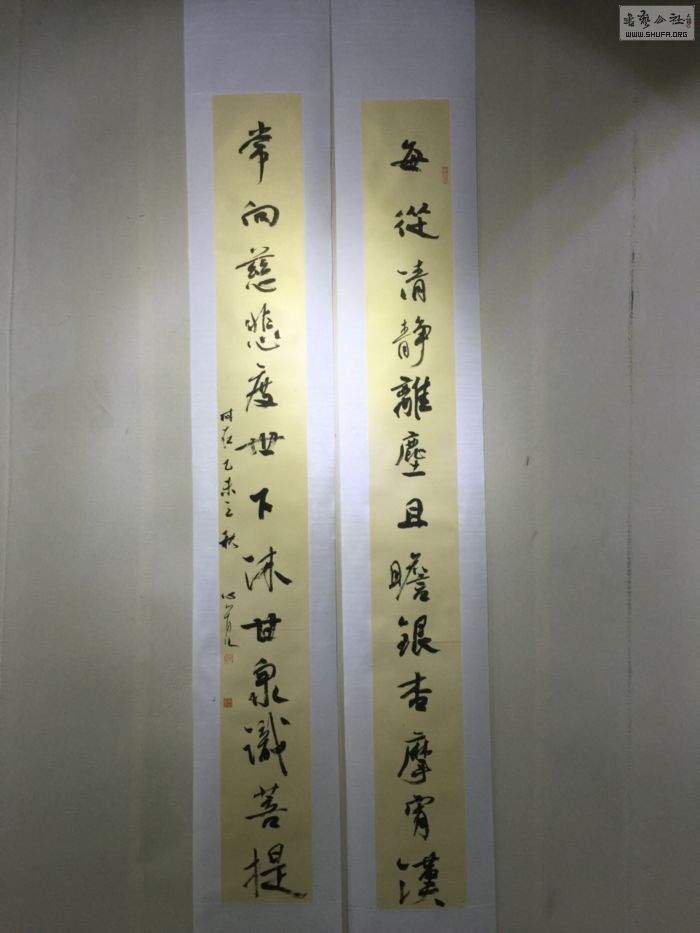 每從清静離塵且瞻銀杏摩霄漢
常向慈悲度世下沐甘泉識菩提
時在乙未之秋
書藝公社
WWW.SHUFA.ORG